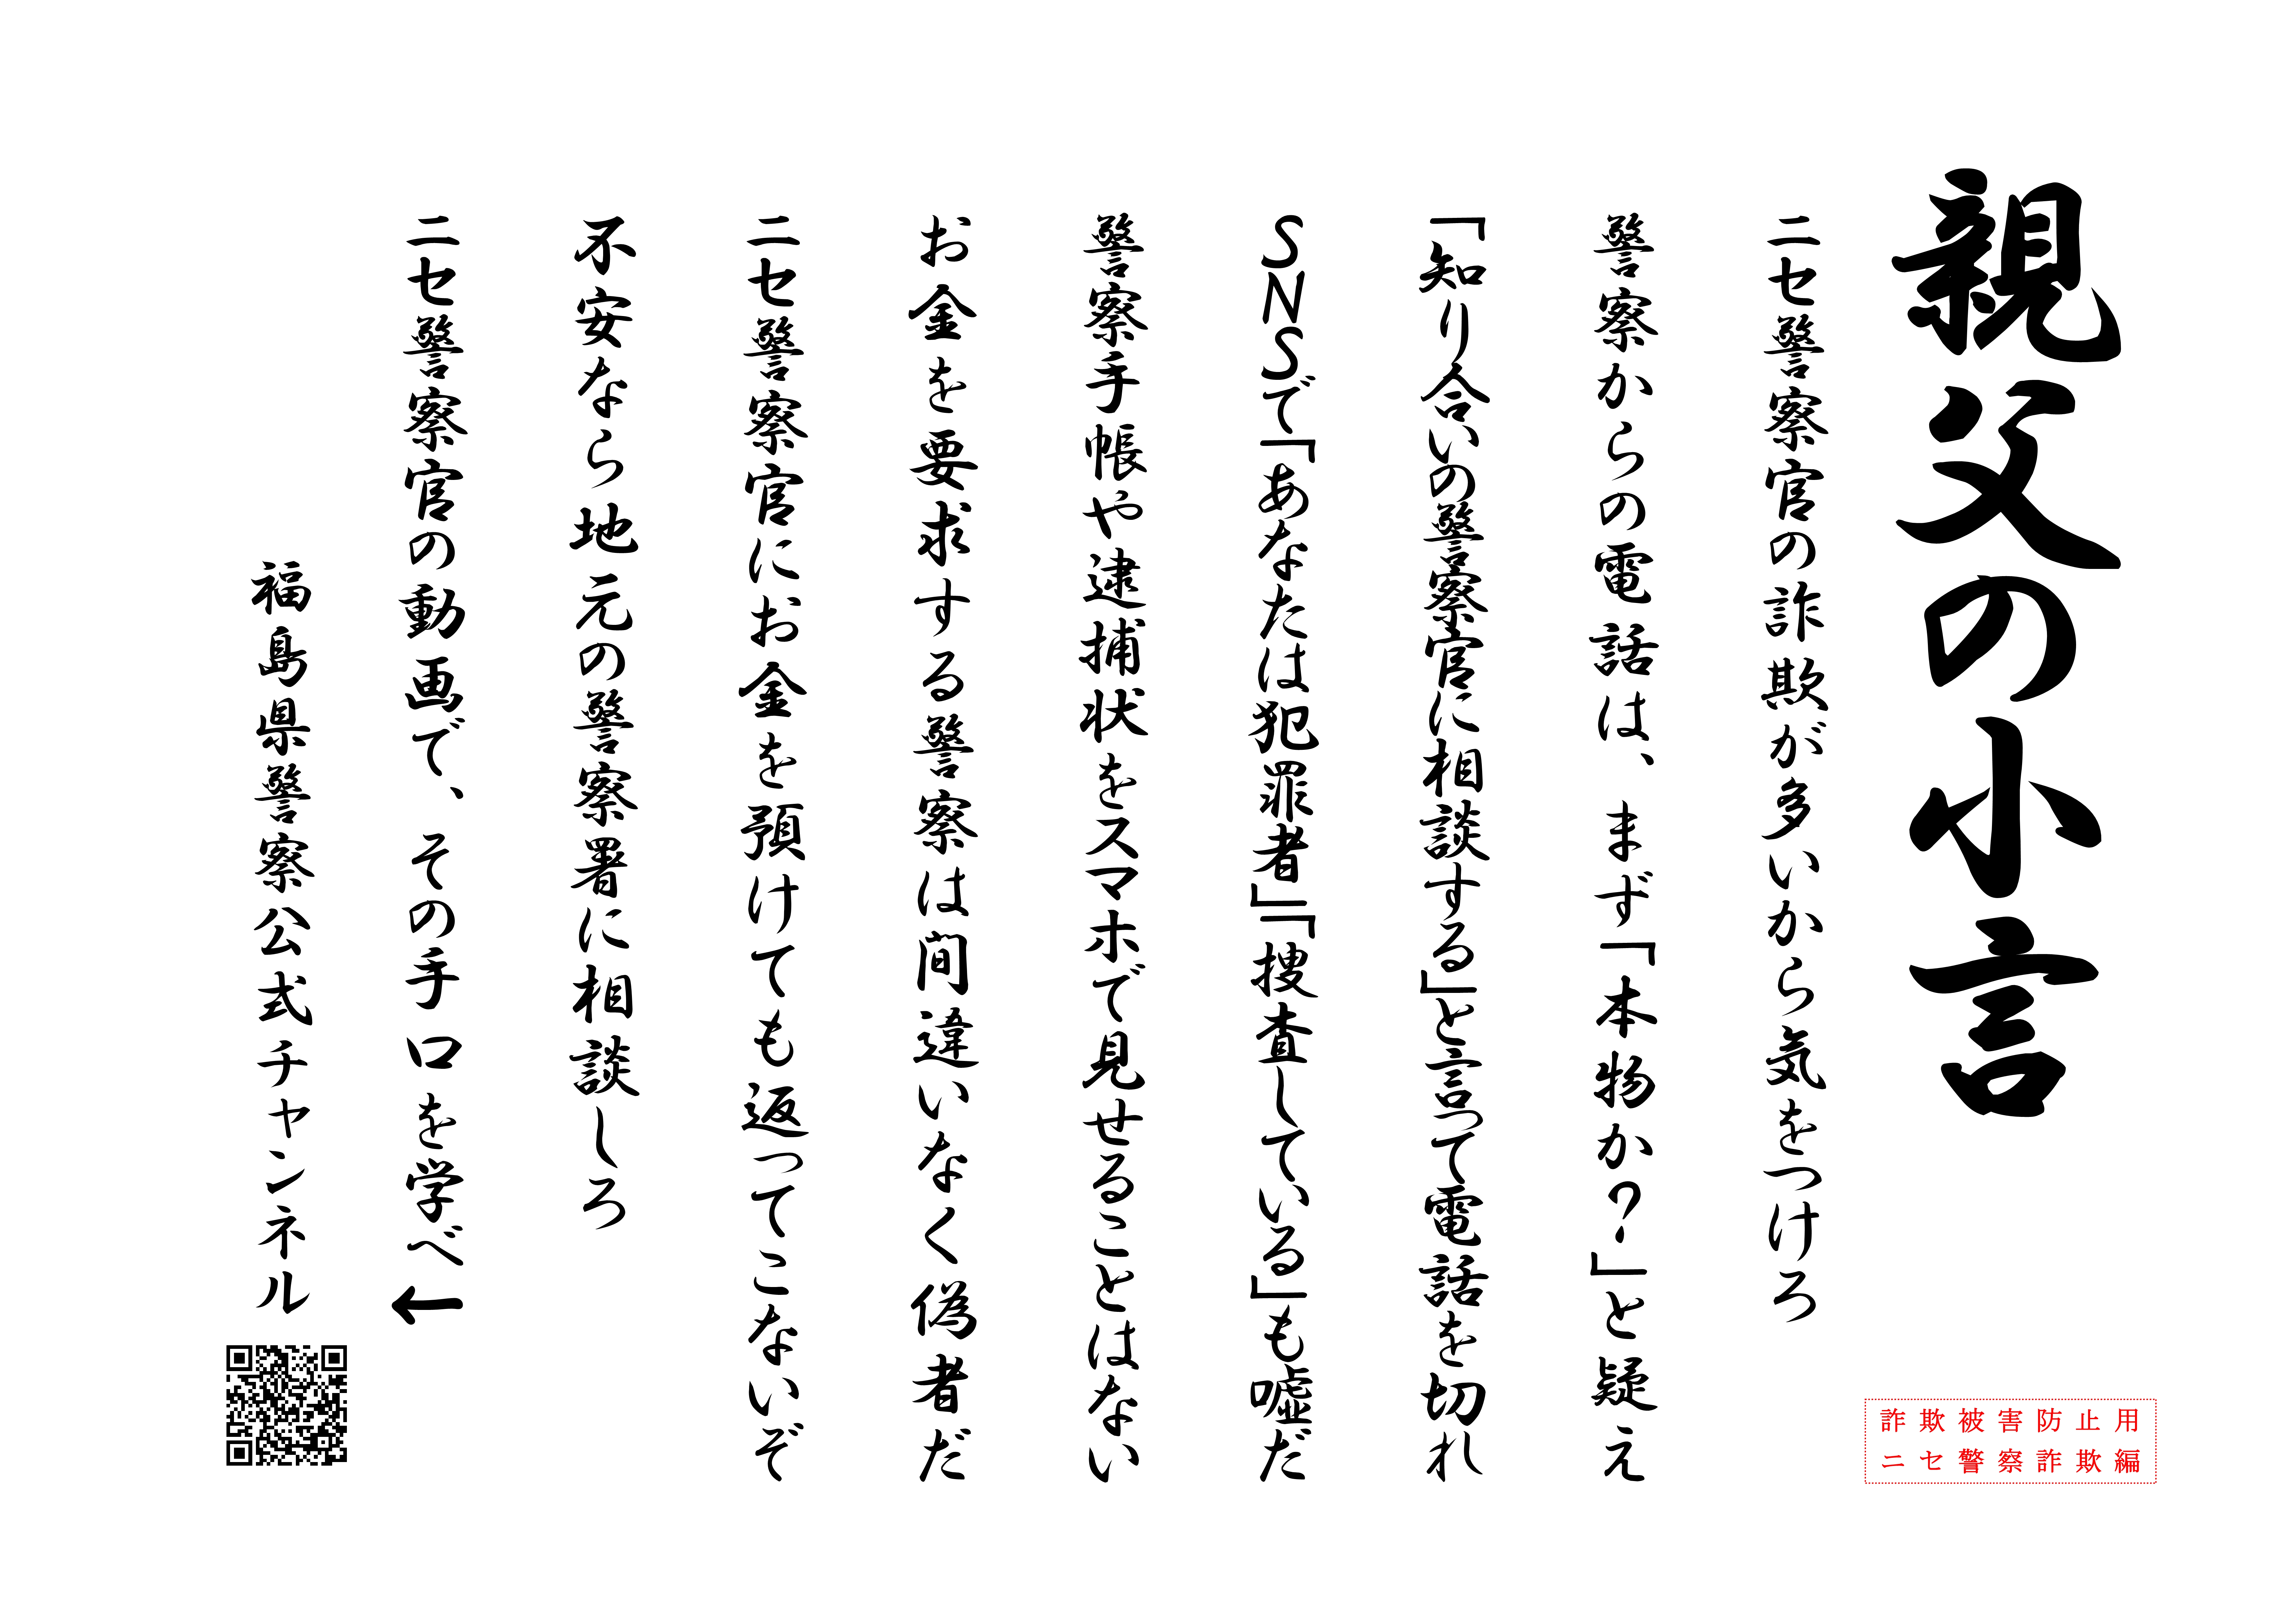 親父の小言
ニセ警察官の詐欺が多いから気をつけろ
警察からの電話は、まず「本物か？」と疑え
「知り合いの警察官に相談する」と言って電話を切れ
SNSで「あなたは犯罪者」「捜査している」も嘘だ
警察手帳や逮捕状をスマホで見せることはない
お金を要求する警察は間違いなく偽者だ
ニセ警察官にお金を預けても返ってこないぞ
不安なら地元の警察署に相談しろ
ニセ警察官の動画で、その手口を学べ←
福島県警察公式チャンネル
詐欺被害防止用
ニセ警察詐欺編